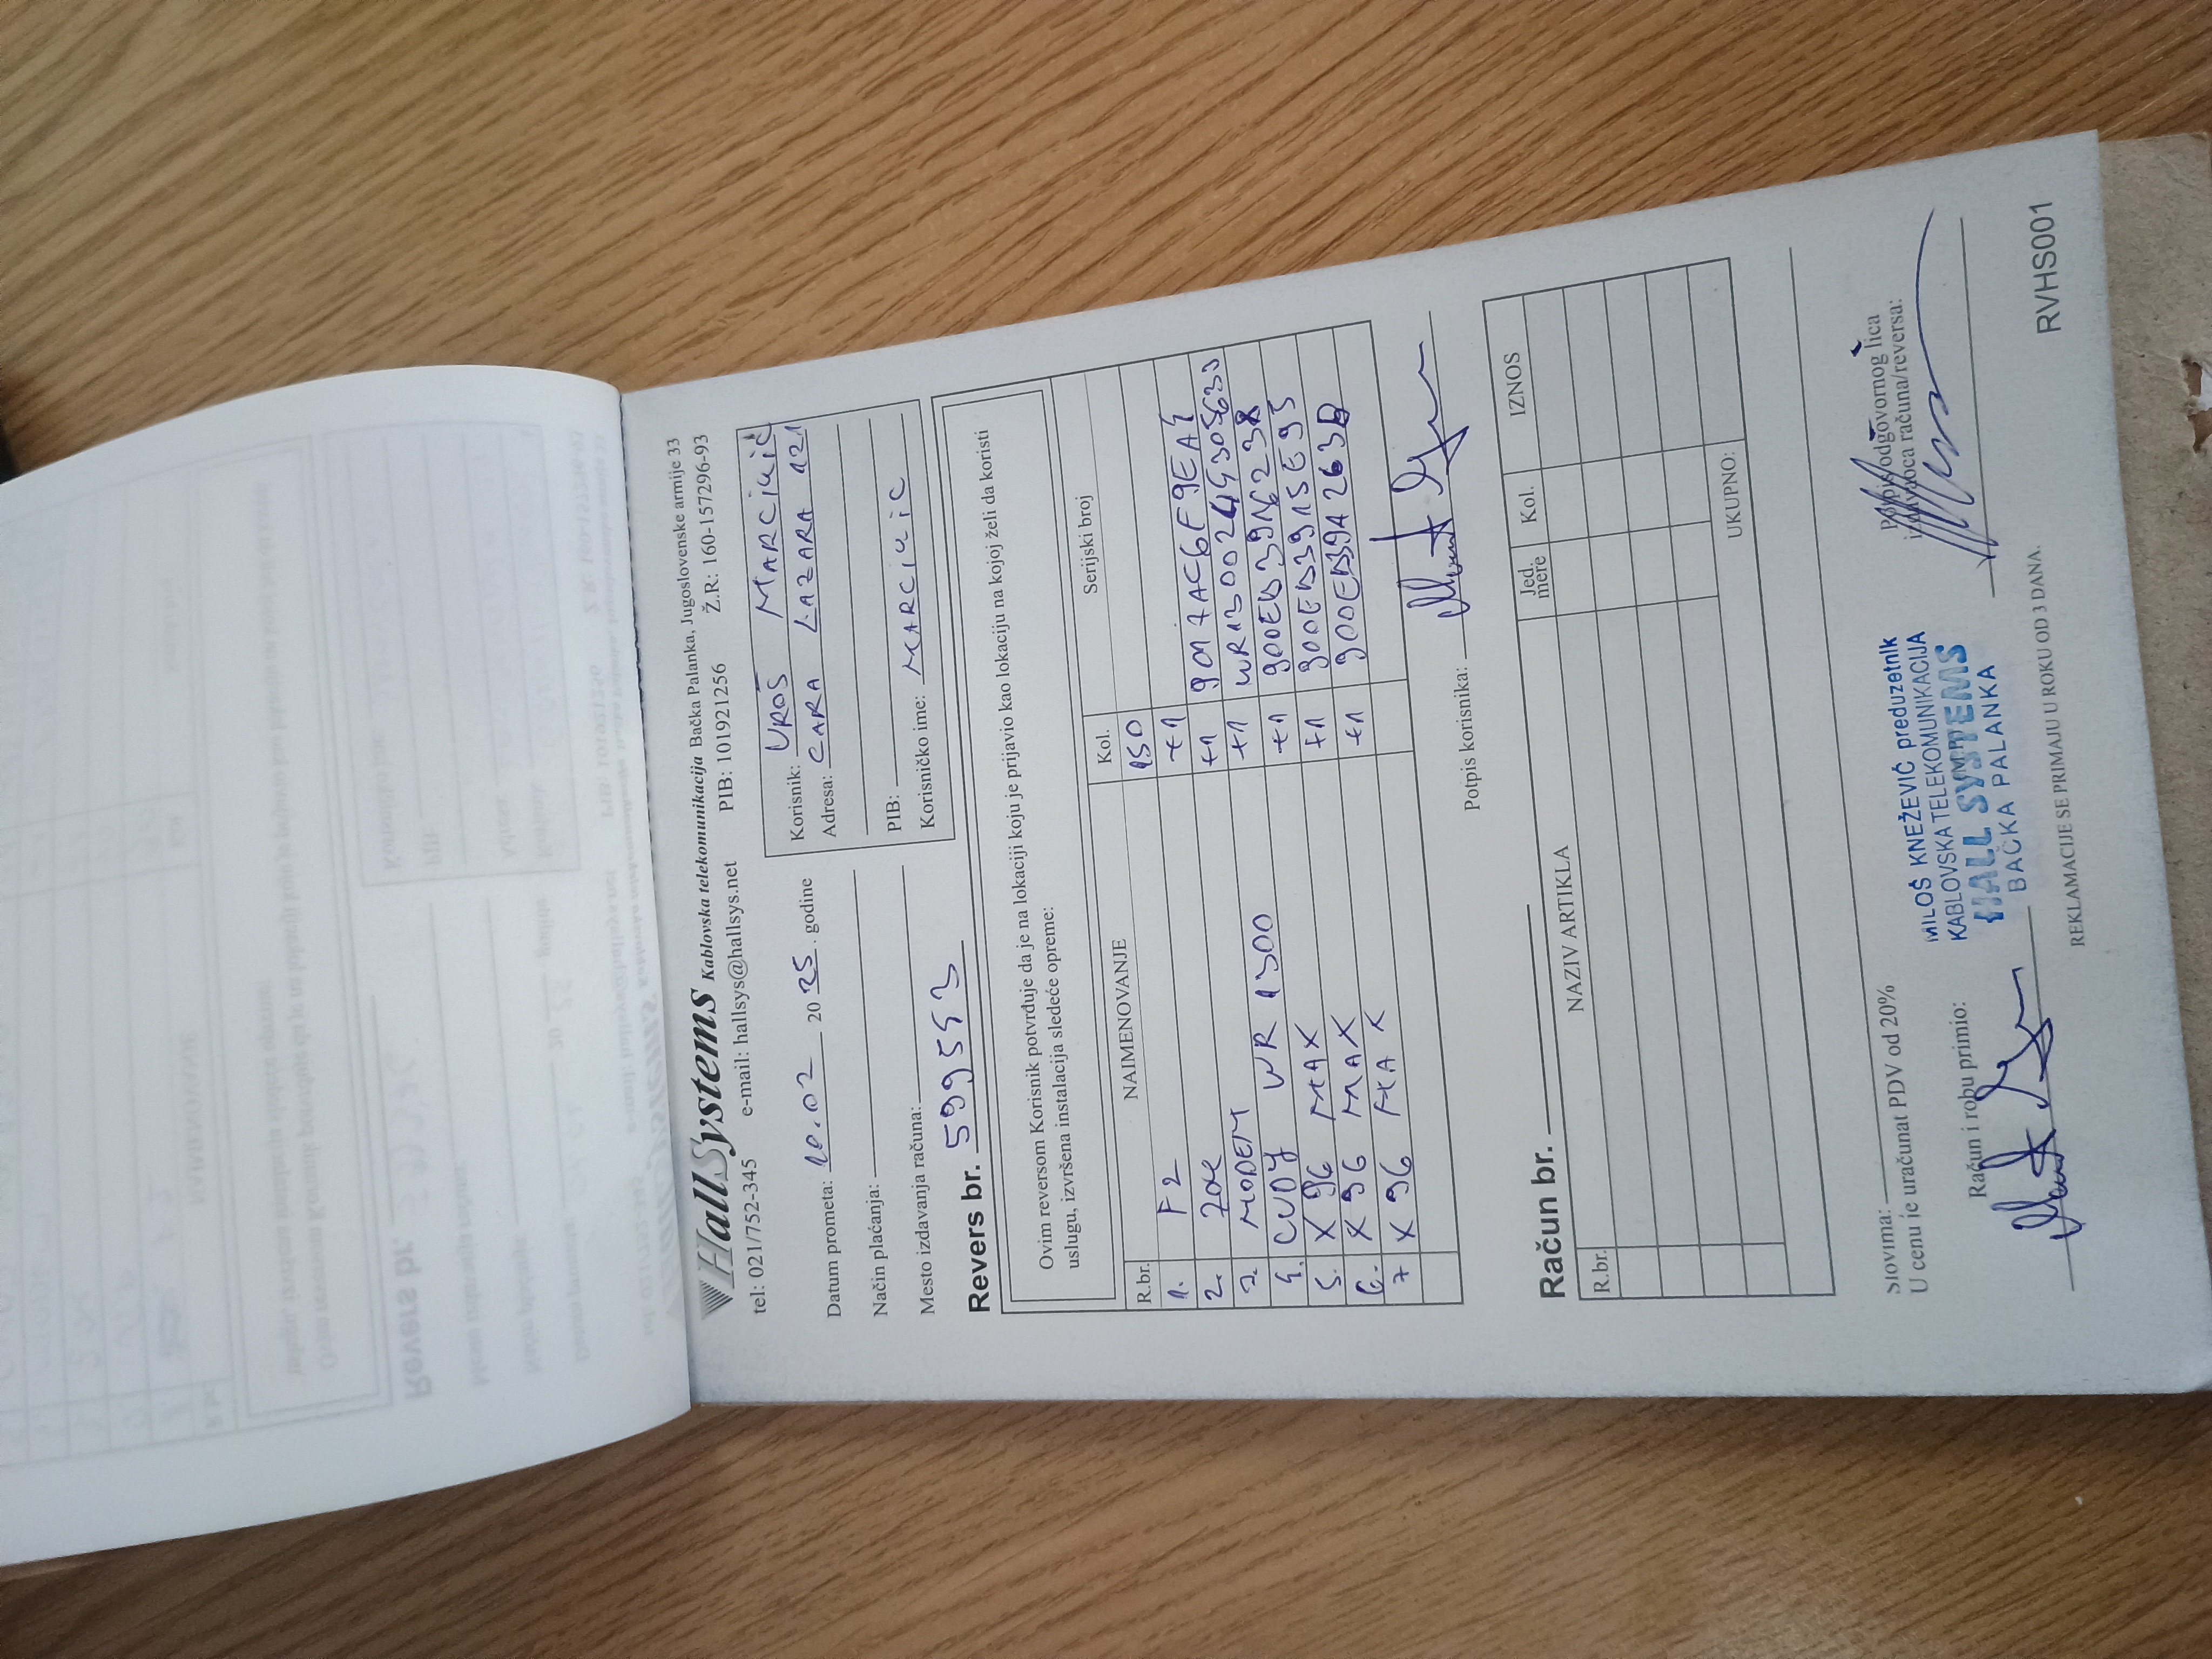 HallSystems Kablovska telekomunikacija Bačka Palanka, Jugoslovenske armije 33
tel: 021/752-345 e-mail: hallsys@hallsys.net PIB: 101921256 Ž.R: 160-157296-93
Datum prometa: 10.02 2025. godine
Način plaćanja:
Mesto izdavanja računa:
Korisnik: UROŠ MARCIKIĆ
Adresa: CARA LAZARA 121
PIB:
Korisničko ime: MARCIKIC
Revers br. 599543
Ovim reversom Korisnik potvrđuje da je na lokaciji koju je prijavio kao lokaciju na kojoj želi da koristi
uslugu, izvršena instalacija sledeće opreme:
R.br. NAIMENOVANJE Kol. Serijski broj
1. F2 150
2. ZOK +1
3. MODEM +1
4. CUDY WR 1300 +1
5. X96 MAX +1
6. X96 MAX +1
7 X96 MAX +1
Potpis korisnika:
Račun br.
R.br. NAZIV ARTIKLA Jed. mere Kol. IZNOS
UKUPNO:
Slovima:
U cenu je uračunat PDV od 20%
Račun i robu primio:
MILOŠ KNEŽEVIĆ preduzetnik
KABLOVSKA TELEKOMUNIKACIJA
HALL SYSTEMS
BAČKA PALANKA
Potpis odgovornog lica
izdavaoca računa/reversa:
REKLAMACIJE SE PRIMAJU U ROKU OD 3 DANA.
RVHS001